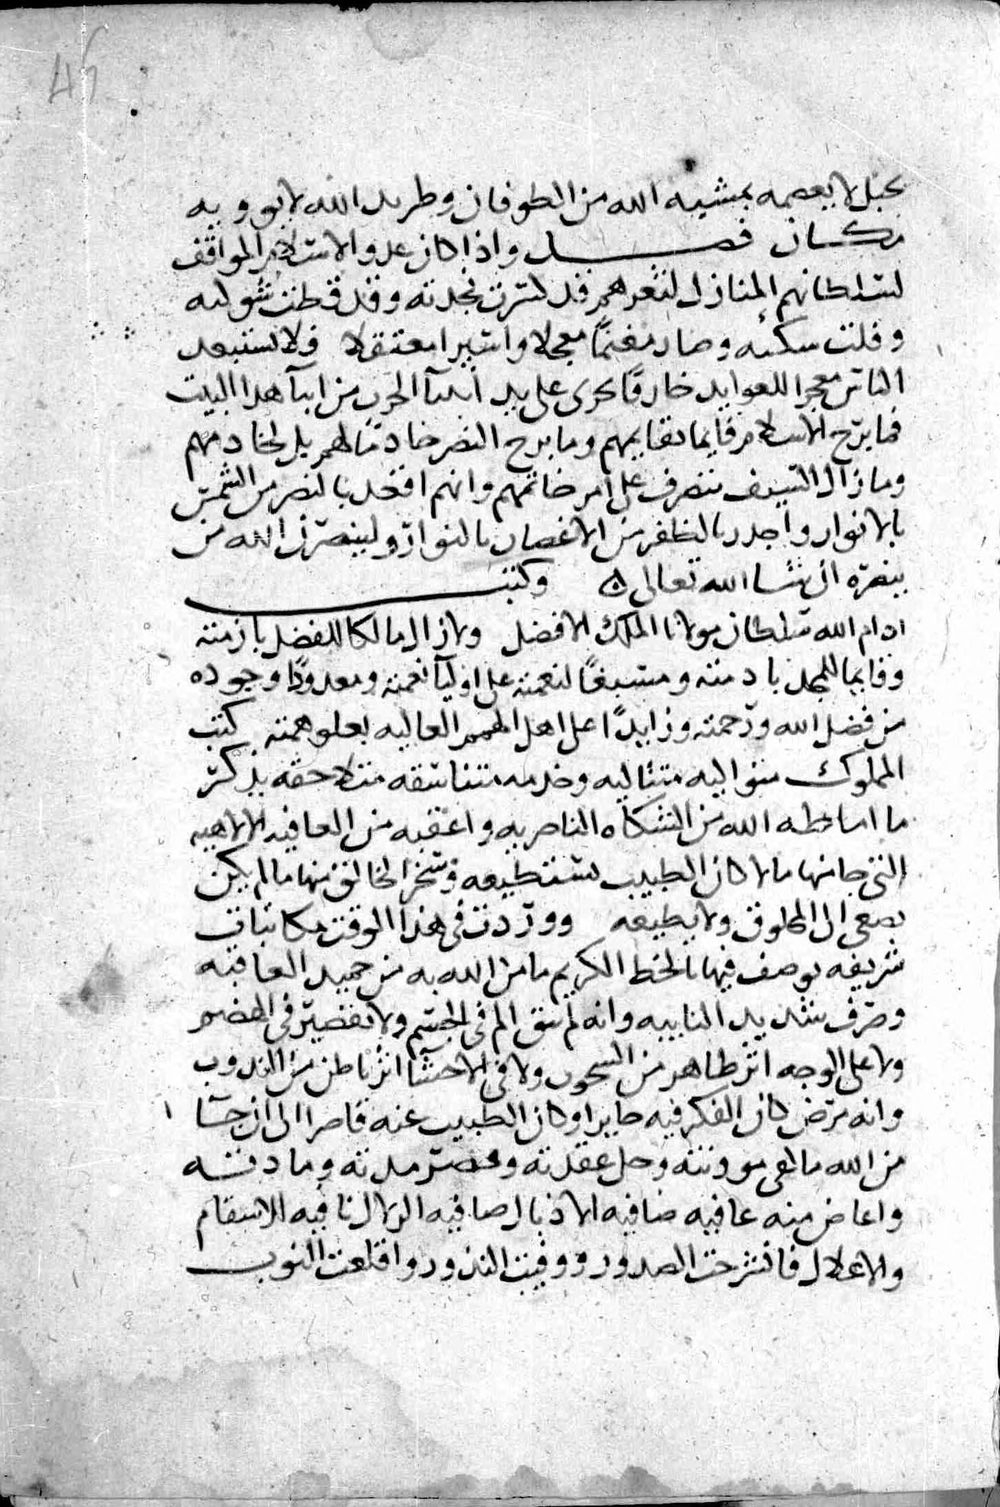 45
بجبل لا يعصمه بمشيه الله من الطوفان وطريد الله لا يوويه
مكان فصل واذا كان عدو الاسلام المواقف
لسلطانهم المنازل لثغرهم قد كسرت نجدته وقد قطت شوكته
وفلت سكته وصار مغنما معجلا واسيرا معتقلا فلا تستبعد
الناس معجزا للعوايد خارقا يجرى على يد ابنآ الحرب من ابنآ هذا البيت
فما برح الاسلام قايما بقايمهم وما برح النصر خادما لهم بل لخادمهم
وما زال السيف يتصرف على امر خاتمهم وانهم اقعد بالنصر من الشمس
بالانوار واجدر بالظفر من الاغصان بالنوار ولينصرن الله من
ينصره ان شا الله تعالى وكتب
ادام الله سلطان مولانا الملك الافضل ولا زال مالكا للفضل بازمته
وقايما للمجد باد منه ومسبغا لنعمته على اوليآ نعمته ومعدودا وجوده
من فضل الله ورحمته وزايدا على اهل الهمم العاليه بعلو همته كتب
المملوك متواليه متتاليه وخدمه متناسقه متلاحقه بذكر
ما اماطه الله من الشكاه الناصريه واعقبه من العافيه الالاهيه
التى جا منها ما لا كان الطبيب يستطيعه وسخر الخالق منها ما لم يكن
يصغى الى المخلوق ولا يطيعه ووردت فى هذا الوقت مكاتبات
شريفه يوصف فيها بالخط الكريم ما من الله به من حميد العافيه
وصرف شديد النايبه وانه لم يبق الم فى الجسم ولا تقصير فى الهضم
ولا على الوجه اثر ظاهر من الشحوب ولا فى الاحشآ اثر باطن من الندوب
وانه مرض كان الفكر فيه حايرا وكان الطبيب عنه قاصرا الى ان جآ
من الله ما كفى موونته وحل عقدته وقصر مدته ومادته
واعاض منه عافيه ضافيه الاذيال صافيه الزلال نافيه الاسقام
والاعلال فانشرحت الصدور ووفيت النذور واقلعت النوب